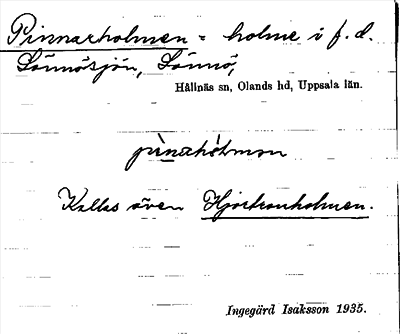 Pinnarholmen = holme i f. d.
Sönnösjön, Sönnö,
Hållnäs sn, Olands hd, Uppsala län.
Kallas även Hjortronholmen.
Ingegärd Isaksson 1935.